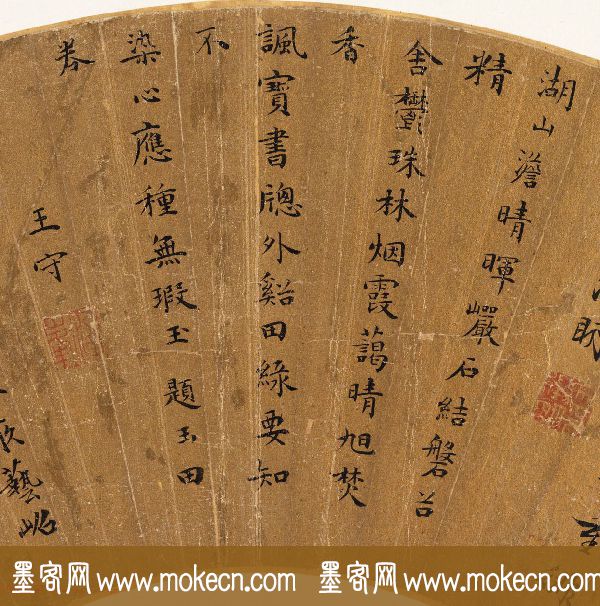 眎
湖山澹晴暉巖石結磐
精
舍鬱珠林烟霞藹晴旭焚
香
諷寶書牕外谿田緑要知
不
染心應種無瑕玉題玉田
卷
王守
藝
墨客网 www.mokecn.com 墨客网 www.mokecn.com